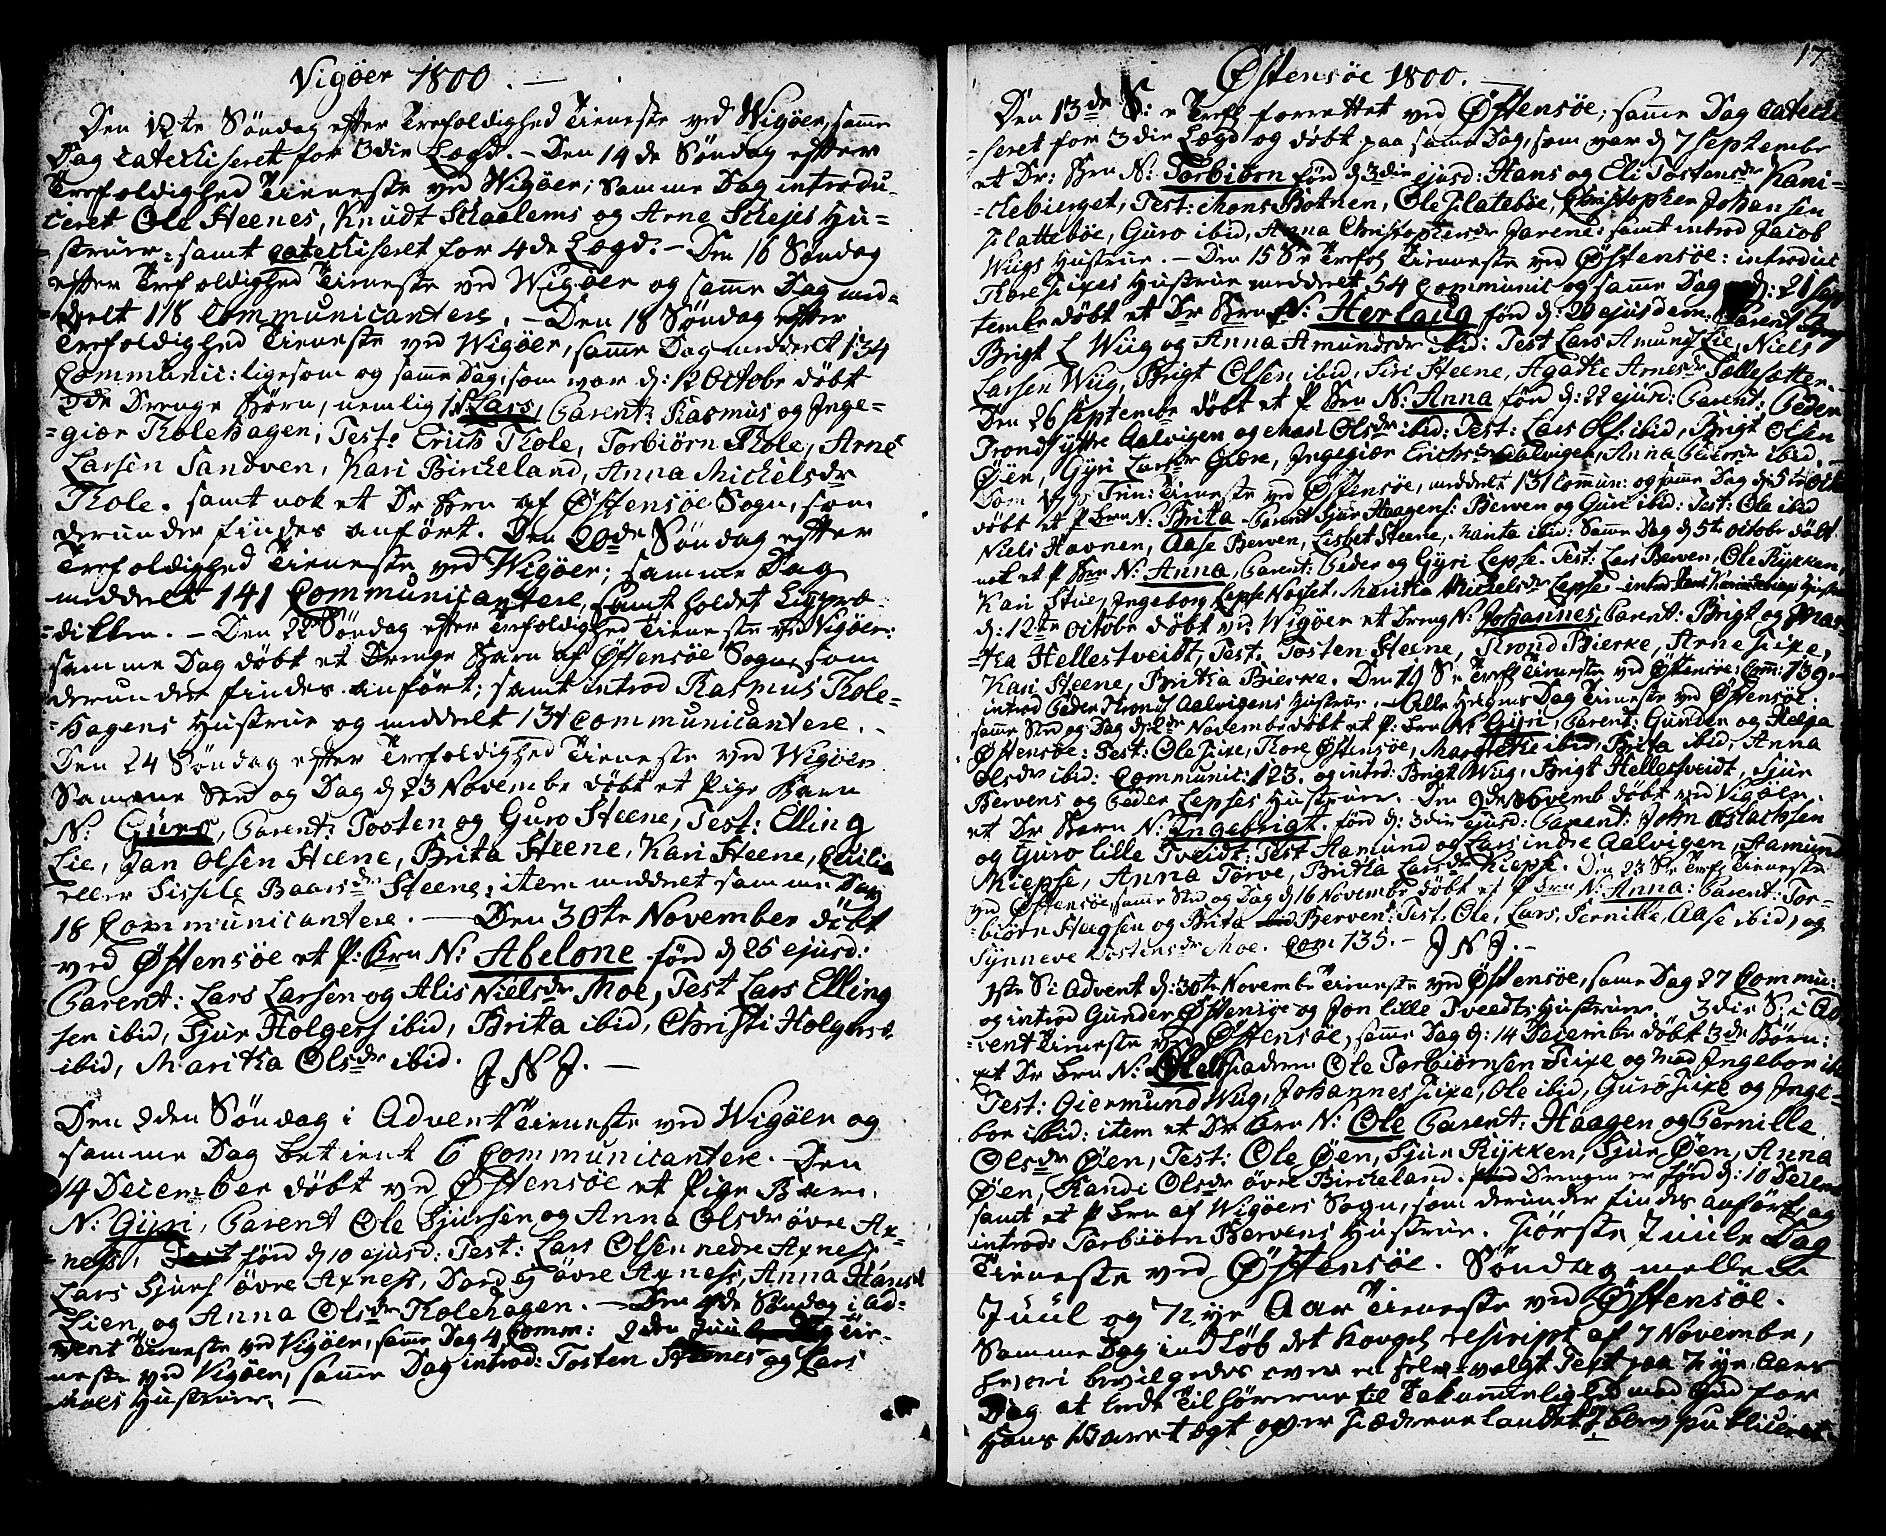 Vigøer 1800. —
Den 12te Søndag efter Trefoldighed Tieneste ved Wigøer, samme
Dag catechiseret for 3die Lægd. — Den 14de Søndag efter
Trefoldighed Tieneste ved Wigøer; samme Dag introdu-
ceret Ole Steenes, Knudt Skaalems og Arne Skejes Hu-
=struer: samt catechiseret for 4de Lægd. — Den 16 Søndag
efter Trefoldighed Tieneste ved Wigøer og samme Dag med-
deelt 118 Communicantere. — Den 18 Søndag efter
Trefoldighed Tieneste ved Wigøer, samme Dag meddeelt 134
Communic: ligesom og samme Dag, som war d: 12 Octobr døbt
2de Drenge Børn, nemlig 1 N: Lars, Parent: Rasmus og Inge-
=giær Tolehagen; Test: Erich Tole, Torbiørn Tole, Arne
Larsen Sandven, Kari Birkeland, Anna Michelsdr
Tole. samt nok et Dr Barn af Østensøe Sogn, som
derunder findes anført. Den 20de Søndag efter
Trefoldighed Tieneste ved Wigøer; samme Dag
meddeelt 141 Communicantere, samt holdet Ligpræ-
=diken. — Den 22 Søndag efter Trefoldighed Tieneste ved Vigøer:
samme Dag døbt et Drenge Barn af Østensøe Sogn, som
derunder findes anført; samt introd Rasmus Tole-
=hagens Hustrue og meddeelt 131 Communicantere. —
Den 24 Søndag efter Trefoldighed Tieneste ved Wigøer
Samme Sted og Dag d 23 Novembr døbt et Pige Barn
N: Guro, Parent: Tosten og Guro Steene, Test: Elling
Lie, Jan Olsen Steene, Brita Steene, Kari Steene, Cicilia
eller Sissele Baarsdr Steene; item meddeelt samme Dag
18 Communicantere. — Den 30te November døbt
ved Østensøe et P: Brn N: Abelone fød d 25 ejusd:
Parent: Lars Larsen og Alis Nielsdr Moe, Test Lars Elling
sen ibid, Sjur Holgers ibid, Brita ibid, Christi Holgers
ibid, Maritha Olsdr ibid. J N J. —
Den 2den Søndag i Advent Tieneste ved Wigøer og
samme Dag betient 6 Communicantere. Den
14 December døbt ved Østensøe et Pige Barn
N: Gyri, Parent Ole Sjursen og Anna Olsdr øvre Ax-
=ness, fød d 10 ejusd: Test: Lars Olsen nedre Axness,
Lars Sjurs øvre Axness, øvre Axness, Anna Hans
Lien og Anna Olsdr Tolehagen. — Den 4de Søndag i Ad-
vent Tieneste ved Vigøer, samme Dag 4 Comm: 2den Juule Dag Tie-
neste ved Vigøer, samme Dag introd: Tosten Steenes og Lars
Moes Hustruer. —
17
Østensøe 1800. —
Den 13de S: e Trefl forrettet ved Østensøe; samme Dag catechi
=seret for 3die Lægd og døbt paa samme Dag, som war d 7 Septembr
et Dr: Brn N: Torbiørn fød d 3die ejusd: Hans og Eli Tostensdr Kani-
=kebierget, Test: Mons Botnen, Ole Flatebøe, Christopher Johansen
Flattebøe, Guro ibid, Anna Christophersdr Zarene: samt introd Jacob
Wiigs Hustrue. — Den 15 S e Trefol Tieneste ved Østensøe: introduc
Tore Fixes Hustrue meddeelt 54 Communic og samme Dag d: 21 Sep
tembr døbt et Dr Brn N: Herlaug fød d: 20 ejusdem. Parent
Brigt L Wiig og Anna Amundsdr ibid: Test Lars Amunds Lie, Niels
Larsen Wiig, Brigt Olsen ibid, Siri Steene, Agatha Arnesdr Tællesætter.
Den 26 Septembr døbt et P Brn N: Anna fød d: 22 ejusd: Parent: Peder
Trondsytre Aalvigen og Mari Olsdr ibid: Test: Lars Ols: ibid, Brigt Olsen
Øen, Gyri Larsdr Giære, Ingegiær Erichsdr Aalvigen, Anna Pedersdr ibid. —
Dom 17 p Trin: Tieneste ved Østensøe, meddeelt 131 Commun: og samme Dag d: 5te Oct
døbt et P Brn N: Brita Parent Sjur Haagens: Berven og Guri ibid: Test: Ole ibid
Niels Havnen, Aase Berven, Lisbet Steene, Marita ibid: Samme Dag d 5te Octobr døbt
nok et P Brn N: Anna, Parent: Peder og Gyri Lepse. Test: Lars Berven, Ole Rykken,
Kari Stue, Ingeborg Lepse Nøset, Maritha Michelsdr Lepse — introd
d: 12te Octobr døbt ved Wigøer et Dreng N: Johannes, Parent: Brigt og Mar-
=tha Hellestveidt, Test: Tosten Steene, Trond Bierke, Arne Fixe,
Kari Steene, Britha Bierke. Den 19 S e Trefl Tieneste ved Østensøe: Comm: 139.
introd Peder Tronds Aalvigens Hustrue. — Alle Helgens Dag Tieneste ved Østensøe
samme Sted og Dag d 2de Novembr døbt et P: Brn N: Gyri, Parent: Gunder og Helga
Østensøe: Test: Ole Fixe, Tore Østensøe, Margrethe ibid, Brita ibid, Anna
Olsdr ibid: Communic: 123. og introd: Brigt Wiig, Brigt Hellestveidt, Sjur
Bervens og Peder Lepses Hustruer. Den 9de Novemb døbt ved Vigøer
et Dr Barn N: Ingebrigt. fød d: 3die ejusd: Parent: John Aslachsen
og Guro lille Tveidt: Test Aamund og Lars indre Aalvigen, Aamund
Kiepse, Anna Torve, Britha Larsdr Kiepse. Den 23 S e Trefl Tieneste
ved Østensøe, samme Sted og Dag d 16 Novembr døbt et P Brn N: Anna: Parent: Tor-
biørn Haagsen og Brita Berven: Test: Ole, Lars, Pernille, Aase ibid, og
Synneve Tostensdr Moe. Com 135. — J N J. —
1ste S i Advent d: 30te Novembr Tieneste ved Østensøe, samme Dag 27 Commu:
og introd Gunder Østensøe og Jon lille Tveedts Hustruer. 3die S: i Ad
=vent Tieneste ved Østensøe, samme Dag d: 14 Decembr døbt 3de Børn:
et Dr Brn N: Ole Faderen Ole Torbiørnsen Fixe og Mod Ingebor ibi
Test: Giermund Wiig, Johannes Fixe, Ole ibid, Guro Fixe og Inge-
bor ibid: item et Dr Brn N: Ole Parent: Haagen og Pernille
Olsdr Øen, Test: Ole Øen, Sjur Rykken, Sjur Øen, Anna
Øen, Randi Olsdr øvre Birkeland. Drengen er fød d: 10 Decem
samt et P Brn af Wigøers Sogn, som derunder findes anført, og
introd: Torbiørn Bervens Hustrue. Første Juule Dag
Tieneste ved Østensøe. Søndag mellem
Juul og Nye Aar Tieneste ved Østensøe.
Samme Dag indløb det Kongel rescript af 7 Novembr,
hvori bevilgedes over en selv-valgt Text paa Nye Aars
Dag at lede Tilhørerne til Taknemmelighed mod Gud for
Hans Varetægt over Fædrenelandet, blev publiceret.